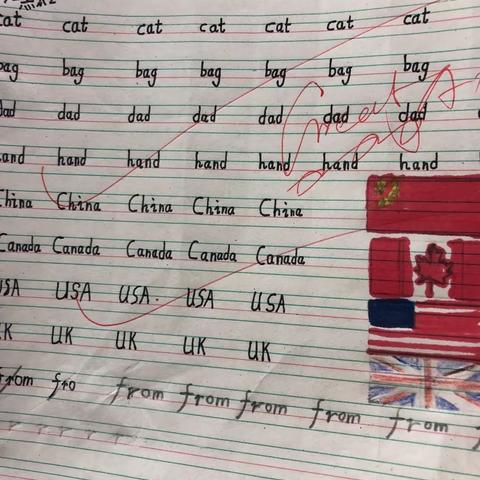 cat cat cat cat cat cat cat
bag bag bag bag bag bag bag
dad dad dad dad dad dad dad
hand hand hand hand hand hand hand
China China China China China
Canada Canada Canada Canada Canada
USA USA USA. USA USA
UK UK UK UK UK
from fro from from from from from